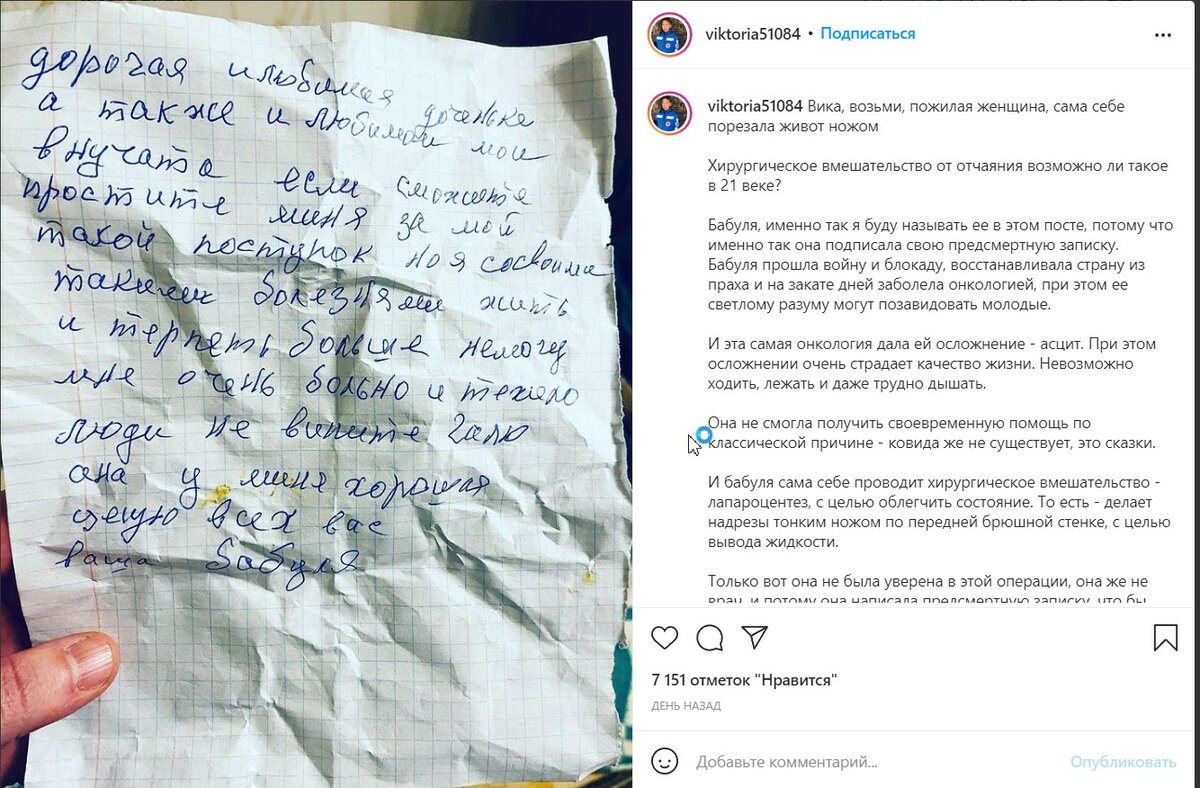 дорогая илюбимая доченька
а также и любимаи мои
внучата если сможите
простите миня за мой
такой поступок ноя сосвоими
такими болезнями жить
и терпеть больше немогу
мне очень больно и тежело
люди не вините Галю
она у миня хорошая
целую всех вас
ваша бабуля
viktoria51084 • Подписаться
viktoria51084 Вика, возьми, пожилая женщина, сама себе
порезала живот ножом
Хирургическое вмешательство от отчаяния возможно ли такое
в 21 веке?
Бабуля, именно так я буду называть ее в этом посте, потому что
именно так она подписала свою предсмертную записку.
Бабуля прошла войну и блокаду, восстанавливала страну из
праха и на закате дней заболела онкологией, при этом ее
светлому разуму могут позавидовать молодые.
И эта самая онкология дала ей осложнение - асцит. При этом
осложнении очень страдает качество жизни. Невозможно
ходить, лежать и даже трудно дышать.
Она не смогла получить своевременную помощь по
классической причине - ковида же не существует, это сказки.
И бабуля сама себе проводит хирургическое вмешательство -
лапароцентез, с целью облегчить состояние. То есть - делает
надрезы тонким ножом по передней брюшной стенке, с целью
вывода жидкости.
Только вот она не была уверена в этой операции, она же не
врач, и потому она написала предсмертную записку, что бы
7 151 отметок "Нравится"
ДЕНЬ НАЗАД
Добавьте комментарий...
Опубликовать